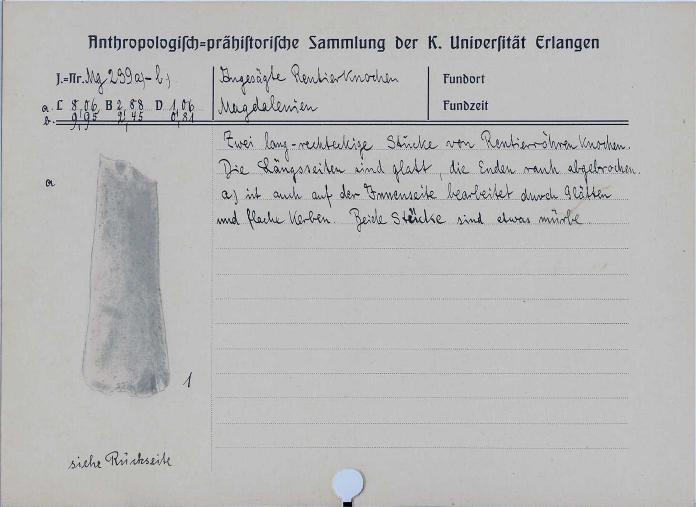 Anthropologisch=prähistorische Sammlung der K. Universität Erlangen
J.=Nr. Mg 299 a)-b)
Angesägte Rentierknochen
Fundort
a. L 8,06 B 2,88 D 1,06
Magdalenien
Fundzeit
b. 9,95 2,45 0,81
Zwei lang-rechteckige Stücke von Rentierröhrenknochen.
Die Längsseiten sind glatt, die Enden rauh abgebrochen.
a) ist auch auf der Innenseite bearbeitet durch Glätten
und flache Kerben. Beide Stücke sind etwas mürbe
a
1
siehe Rückseite